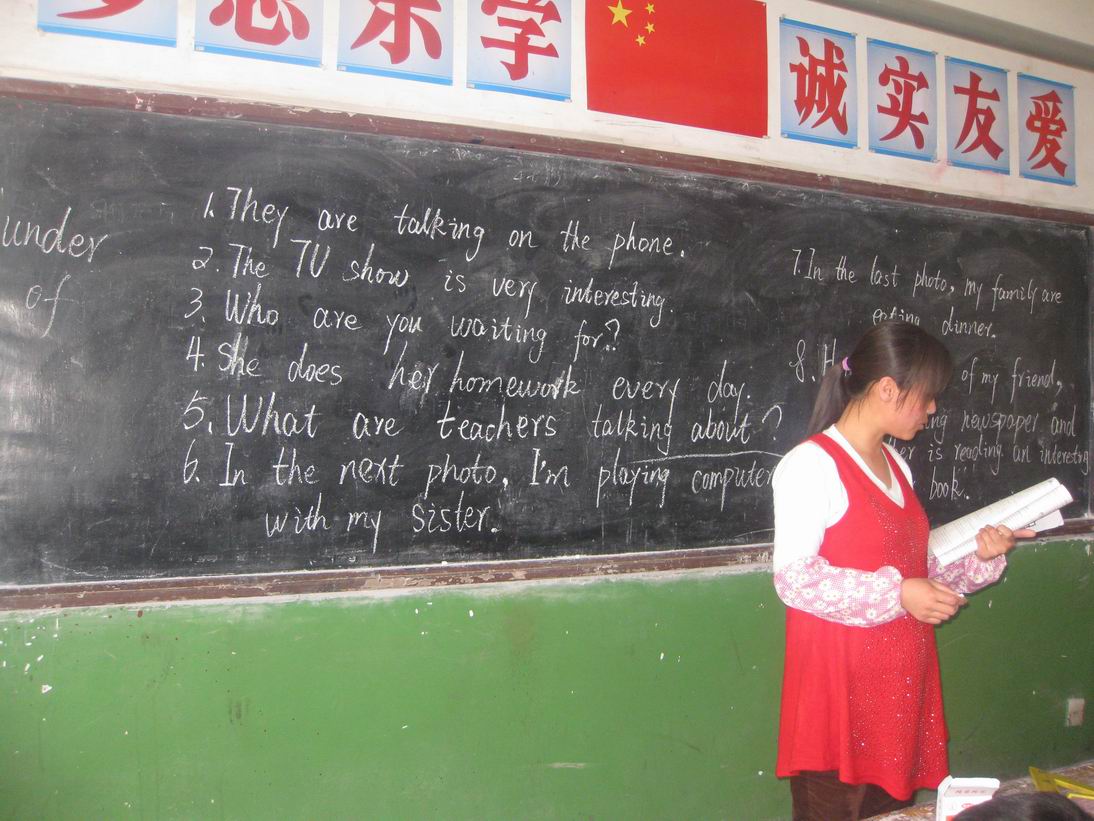 多思乐学
诚实友爱
under
of
1. They are talking on the phone.
2. The TV show is very interesting.
3. Who are you waiting for?
4. She does her homework every day.
5. What are teachers talking about?
6. In the next photo, I'm playing computer
with my sister.
7. In the last photo, my family are
eating dinner.
8. of my friend,
newspaper and
is reading an interesting
book.